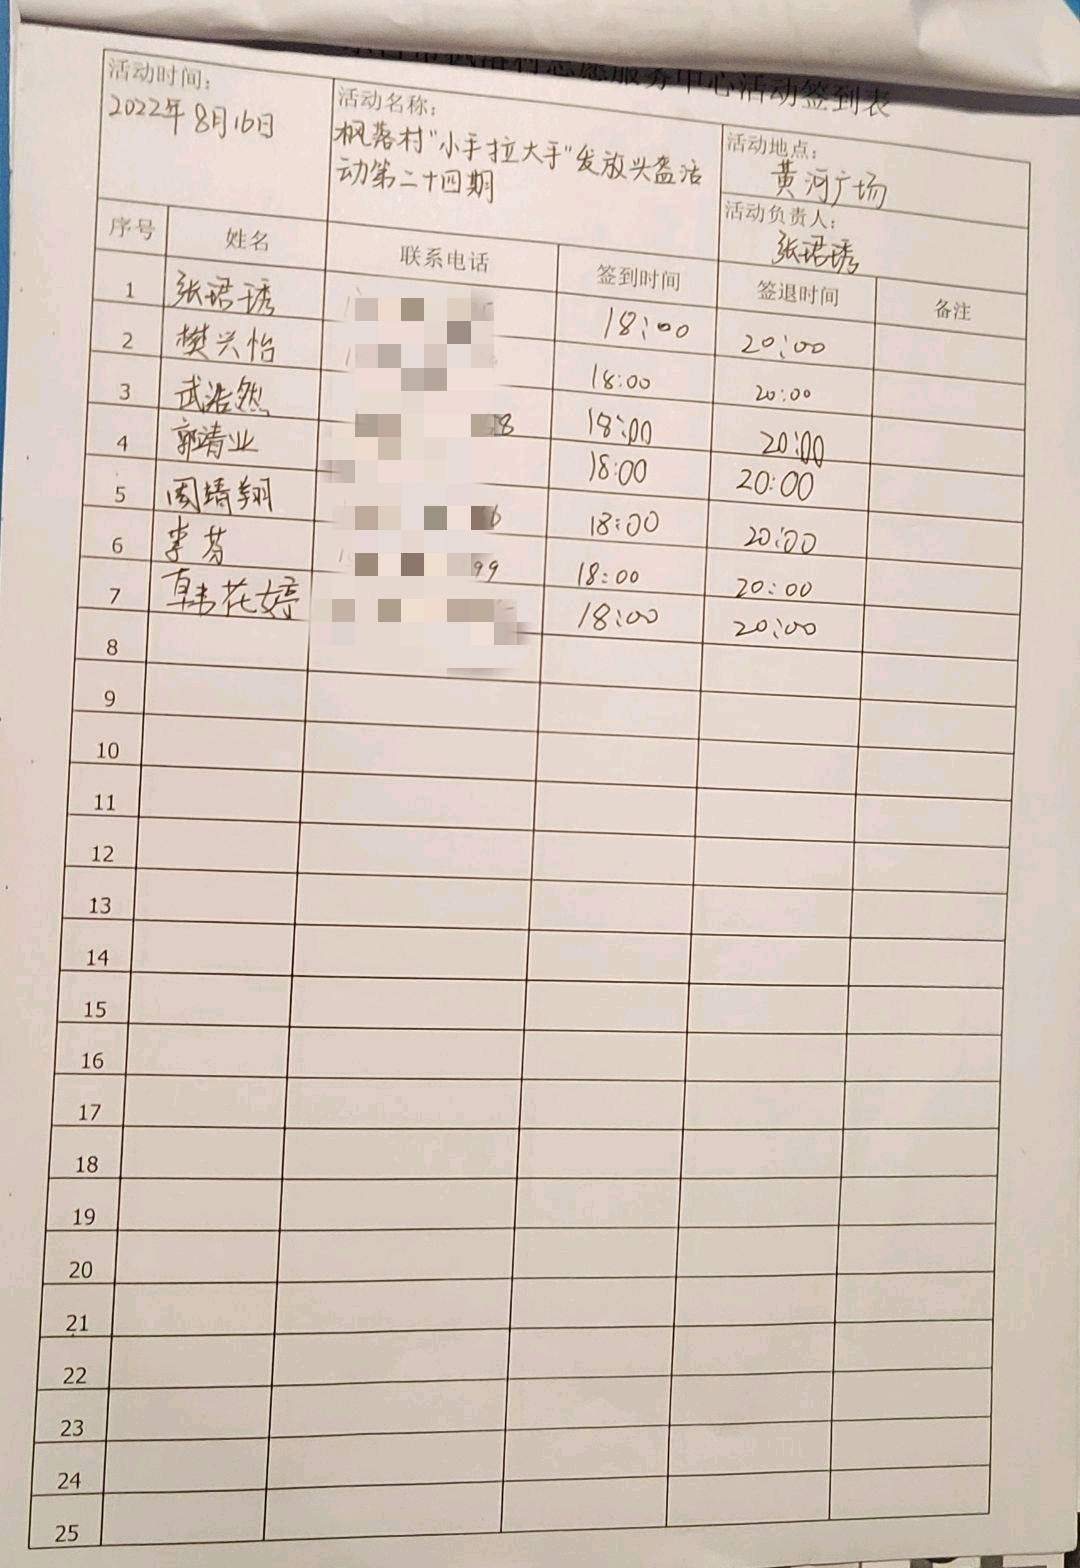 志愿服务中心活动签到表
活动时间：
2022年8月16日
活动名称：
枫落村“小手拉大手”发放头盔活
动第二十四期
活动地点：
黄河广场
活动负责人：
张珺琇
序号 姓名 联系电话 签到时间 签退时间 备注
1 张珺琇 18:00 20:00
2 樊兴怡 18:00 20:00
3 武浩然 28 18:00 20:00
4 郭靖业 18:00 20:00
5 周靖翔 6 18:00 20:00
6 李芬 99 18:00 20:00
7 韩花婷 18:00 20:00
8
9
10
11
12
13
14
15
16
17
18
19
20
21
22
23
24
25